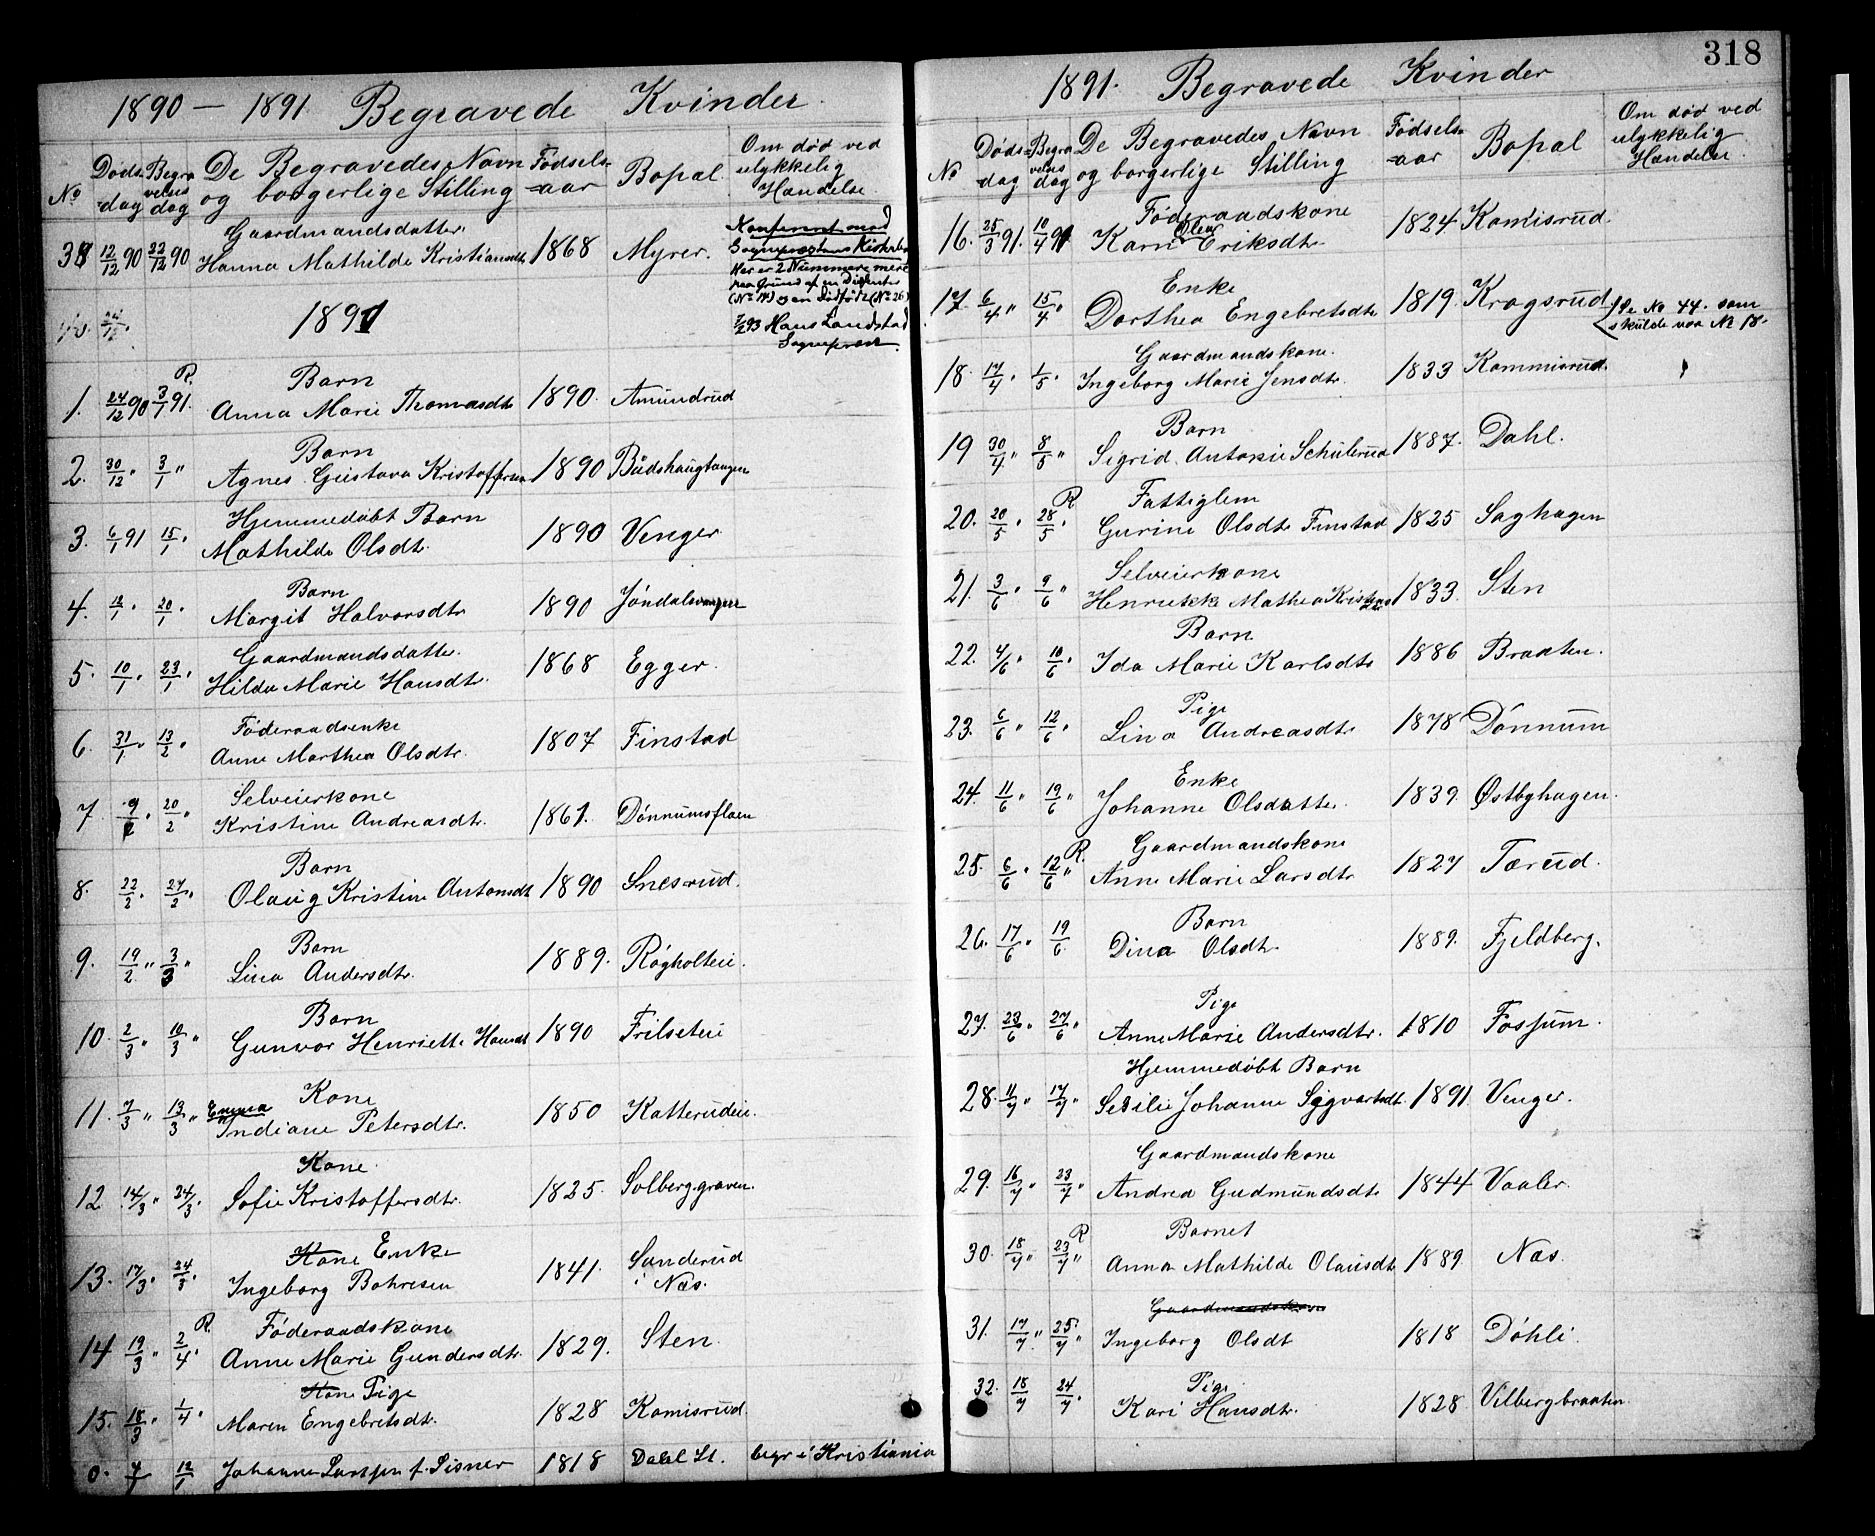 1890 – 1891 Begravede Kvinder
No Døds-dag Begravelses dag De Begravedes Navn og borgerlige Stilling Fødsels-aar Bopæl Om død ved ulykkelig Hændelse
Gaardmandsdatter
38 12/12 90 22/12 90 Hanna Mathilde Kristiansdt. 1868 Myrer.
Konfereret med
Sogneprestens Kirkebog
Her er 2 Nummere mere
paa Grund af en Dissenter
(No 14) og en Dødfødt (No 26)
7/2 93 Hans Landstad
Sogneprest
1891
R. Barn
1. 24/12 90 3/1 91. Anna Marie Thomasdt. 1890. Amundrud
Barn
2. 30/12 " 3/1 " Agnes Gustava Kristoffersen 1890
Hjemmedøbt Barn
3. 6/1 91 15/1 " Mathilde Olsdt. 1890 Venger
Barn
4. 12/1 " 20/1 " Margit Halvorsdtr 1890
Gaardmandsdatter.
5. 10/1 " 23/1 " Hilda Marie Hansdt. 1868 Egger.
Føderaadsenke
6. 31/1 " 13/2 " Anne Marthea Olsdtr. 1807 Finstad
Selveierkone
7 9/2 " 20/2 " Kristine Andreasdtr. 1861. Dønnumsflaen
Barn
8. 22/2 " 27/2 " Olaug Kristine Antonsdt 1890 Snesrud.
Barn
9. 19/2 " 3/3 " Lina Andersdtr. 1889. Røgholteii.
Barn
10. 2/3 " 10/3 " Gunvor Henriette Hansdt 1890 Frilseteii
Kone
11. 7/3 " 13/3 " Emma Indiane Petersdtr. 1850 Katterudeii.
Kone
12 14/3 " 24/3 " Sofie Kristoffersdtr. 1825. Solberggraven.
Kone Enke
13. 17/3 " 24/3 " Ingeborg Bohresen 1841. Sanderud
i Næs.
R. Føderaadskone
14 19/3 " 2/4 " Anne Marie Gundersdtr. 1829. Sten.
Kone Pige
15. 18/3 " 1/4 " Maren Engebretsdtr. 1828 Komisrud.
0. 12/1 Johanne f. Sisner 1818 Dahl St. begr i Kristiania
318
1891. Begravede Kvinder
No Døds-dag Begravelses dag De Begravedes Navn og borgerlige Stilling Fødsels-aar Bopæl Om død ved ulykkelig Hændelse.
Føderaadskone
16. 25/3 91. 10/4 91 Karn Olea Eriksdtr 1824 Komisrud.
Enke
17. 6/4 " 15/4 " Dorthea Engebretsdtr 1819. Kragsrud
Se No 44. som
skulde vær No 18.
Gaardmandskone.
18. 17/4 " 1/5 " Ingeborg Marie Jensdtr. 1833 Kommisrud.
Barn
19 30/4 " 8/5 " Sigrid Antonie Schulerud 1887. Dahl.
R Fattiglem
20. 20/5 " 28/5 " Gurine Olsdtr Finstad 1825 Saghagen
Selveierkone
21. 3/6 " 9/6 " Henriette Mathea 1833. Sten
Barn
22. 4/6 " 10/6 " Ida Marie Karlsdtr 1886 Braaten.
Pige
23. 6/6 " 12/6 " Lina Andreasdtr 1878 Dønnum
Enke
24. 11/6 " 19/6 " Johanne Olsdatter. 1839. Østbyhagen.
R. Gaardmandskone
25. 6/6 " 12/6 " Anne Marie Larsdtr 1827 Tærud.
Barn
26. 17/6 " 19/6 Dina Olsdtr 1889. Fjeldberg.
Pige
27. 23/6 " 27/6 " Anne Marie Andersdtr. 1810 Fossum.
Hjemmedøbt Barn
28. 11/7 " 17/7 " Sesilie Johanne Sigvartsdt. 1891 Venger.
Gaardmandskone
29. 16/7 " 23/7 " Andrea Gudmundsdtr 1844 Vaaler.
R Barnet
30. 18/7 " 23/7 " Anna Mathilde Olausdtr 1889. Næs.
Gaardmandskone
31. 17/7 " 25/7 " Ingeborg Olsdt 1818 Døhli.
Pige
32. 18/7 24/7 " Kari Hansdtr. 1828 Vilbergbraaten